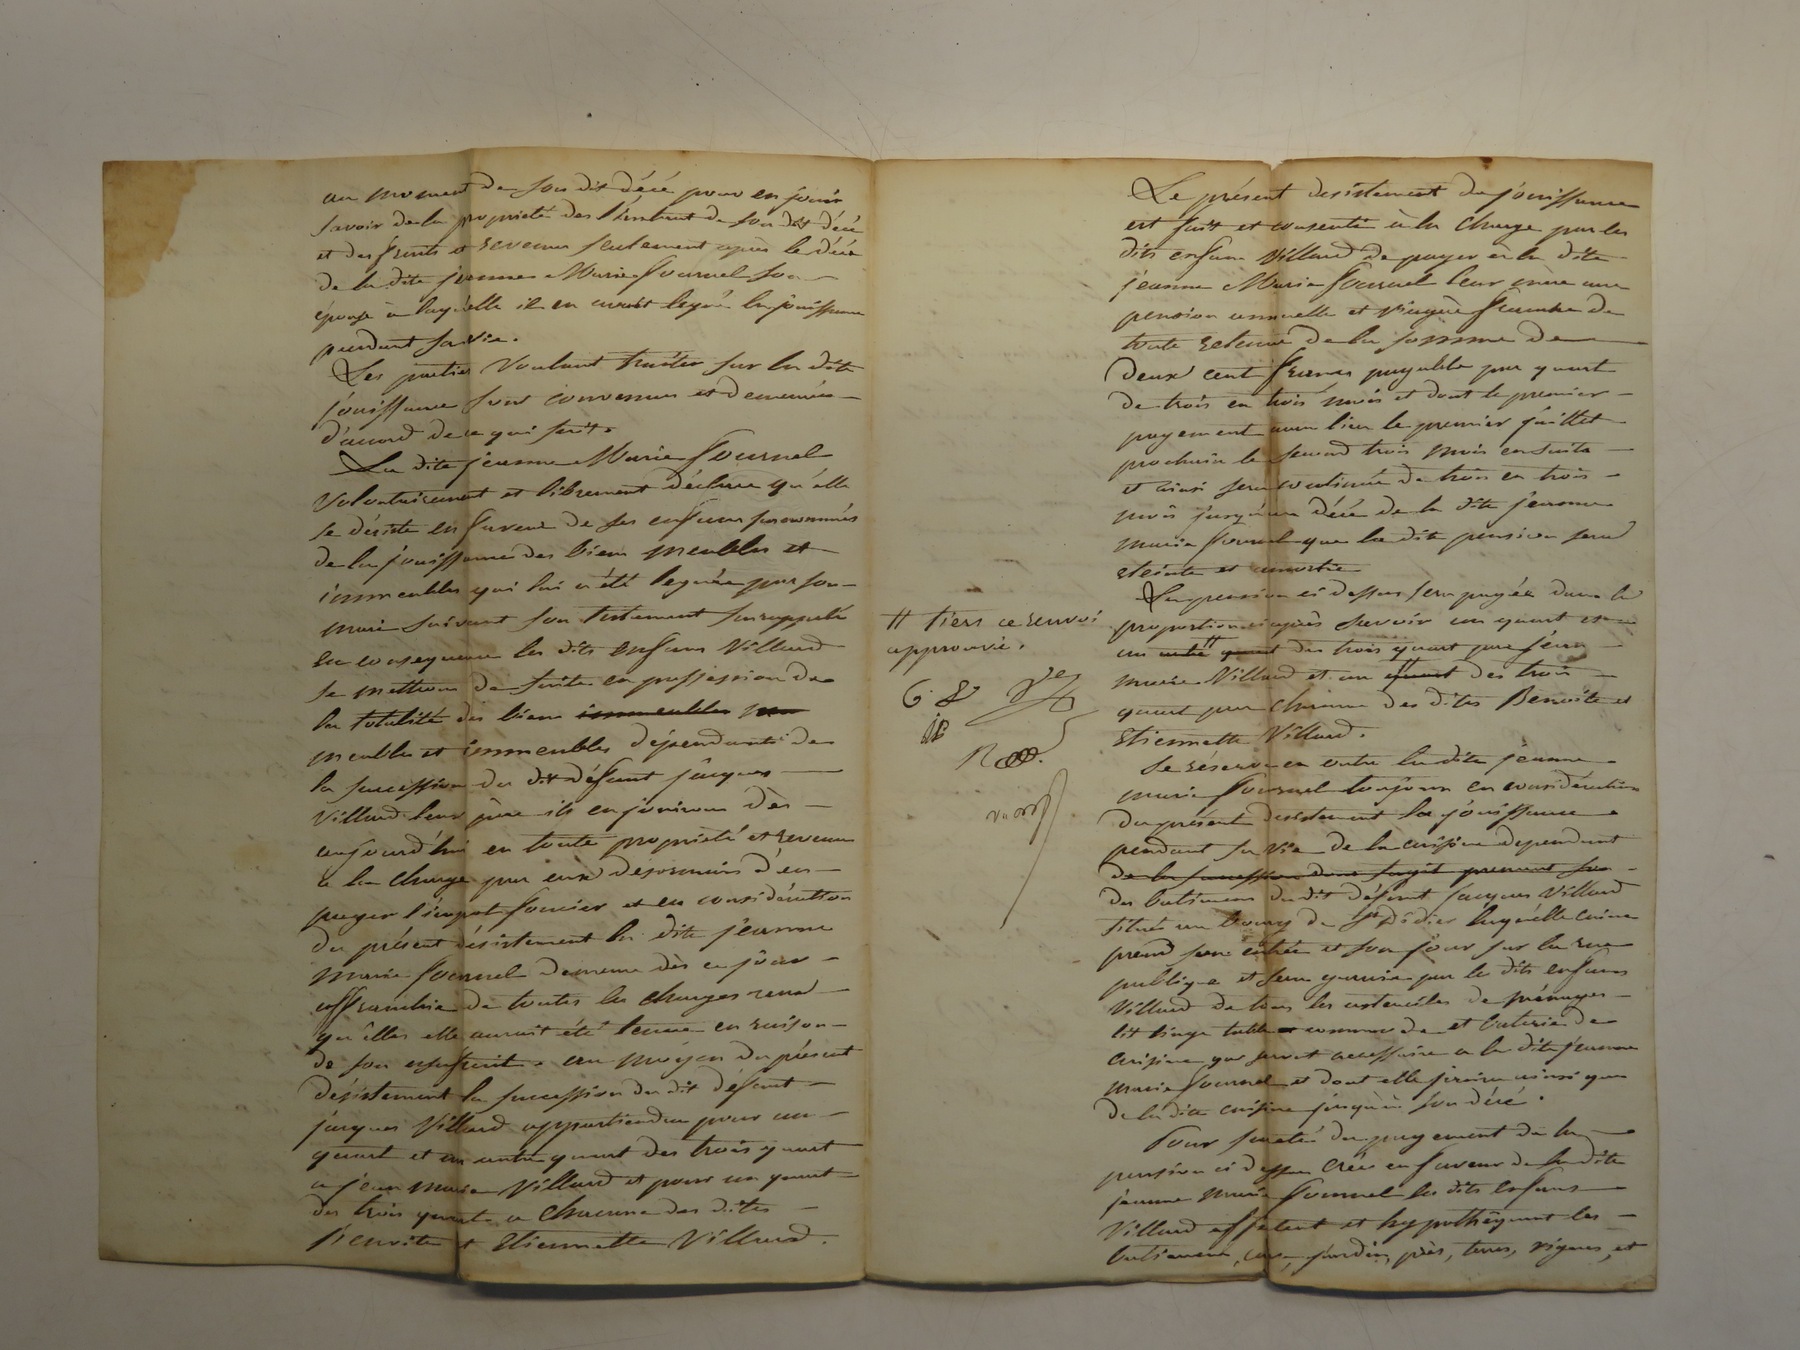 au moment de son dit décé pour en jouir
savoir de la propriété des l'instant de son dit décé
et des fruits et revenus seulement après le décé
de la dite jeanne Marie Fournel son
épouse à laquelle il en avoit legué la jouissance
pendant sa vie.
Les parties voulant traiter sur la dite
jouissance sont convenues et demeurées
d'accord de ce qui suit.
La dite jeanne Marie Fournel
volontairement et librement déclare qu'elle
se désiste en faveur de ses enfans susnommés
de la jouissance des biens meubles et
immeubles qui lui a été leguée par son
mari suivant son testament susrappelé
en consequence les dits enfans Villard
se mettront de suite en possession de
la totalité des biens immeubles
meubles et immeubles dépendants de
la succession du dit défunt jacques
Villard leur père ils en jouiront dès
aujourd'hui en toute propriété et revenus
à la charge par eux désormais d'en
payer l'impot foncier et en considération
du présent désistement la dite jeanne
Marie Fournel demeure dès ce jour
affranchie de toutes les charges
qu'elles elle auroit été tenue en raison
de son usufruit. au moyen du présent
désistement la succession du dit défunt
jacques Villard appartiendra pour un
quart et un autre quart des trois quart
a jean marie Villard et pour un quart
des trois quart a chacune des dites
Benoite et Etiennette Villard.
tiers ce renvoi
approuvé.
Le présent desistement de jouissance
est fait et consenti à la charge par les
dits enfans Villard de payer à la dite
jeanne Marie Fournel leur mère une
pension annuelle et viagère franche de
toute retenue de la somme de
deux cent francs payable par quart
de trois en trois mois et dont le premier
payement aura lieu le premier juillet
prochain le second trois mois ensuite
et ainsi sera continué de trois en trois
mois jusqu'au décé de la dite jeanne
marie Fournel que la dite pension sera
eteinte et amortie
La pension ci dessus sera payée dans la
proportion ci après savoir un quart et
un autre quart des trois quart par jean
marie Villard et un quart des trois
quart par chacune des dites Benoite et
Etiennette Villard.
Se réserve en outre la dite jeanne
marie Fournel toujours en considération
du présent desistement la jouissance
pendant sa vie de la cuisine dependant
de la succession dont s'agit prenant son
des batimens du dit défunt jacques Villard
situés au bourg de St Didier laquelle cuisine
prend son entrée et son jour sur la rue
publique et sera garnie par le dits enfans
Villard de tous les ustenciles de ménages
lit linge table commode et batterie de
cuisine que seront necessaire a la dite jeanne
marie Fournel et dont elle jouira ainsi que
de la dite cuisine jusqu'à son décé.
Pour sureté du payement de la
pension ci dessus créée en faveur de la dite
jeanne marie Fournel les dits enfans
Villard affectent et hypothèquent les
batimens, cour, jardin, près, terres, vignes, et